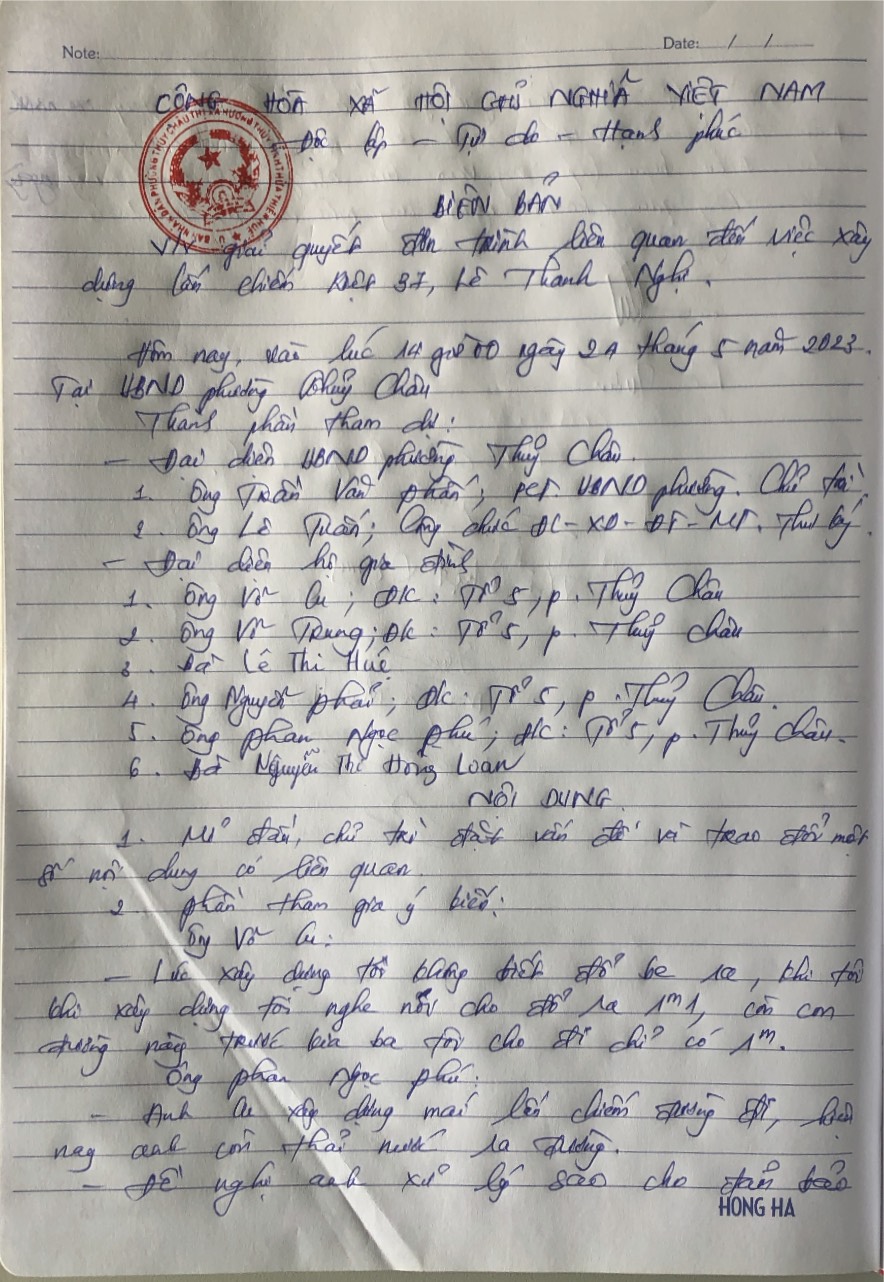 Note:
Date: / /
CỘNG HÒA XÃ HỘI CHỦ NGHĨA VIỆT NAM
Độc lập - Tự do - Hạnh phúc
BIÊN BẢN
V/v giải quyết đơn trình liên quan đến việc xây
dựng lấn chiếm kiệt 37, Lê Thanh Nghị.
Hôm nay, vào lúc 14 giờ 00 ngày 24 tháng 5 năm 2023.
Tại UBND phường Thủy Châu
Thành phần tham dự:
- Đại diện UBND phường Thuỷ Châu.
1. Ông Trần Văn Phấn; PCT. UBND phường. Chủ trì.
2. Ông Lê Tuấn; Công chức ĐC-XD-ĐT-MT. Thư ký.
- Đại diện hộ gia đình
1. Ông Võ Cu; ĐK: Tổ 5, p. Thuỷ Châu
2. Ông Võ Trung; ĐK: Tổ 5, p. Thuỷ Châu
3. Bà Lê Thị Huê
4. Ông Nguyễn Phái; ĐK: Tổ 5, p. Thuỷ Châu.
5. Ông Phan Ngọc Phú; ĐK: Tổ 5, p. Thuỷ Châu.
6. Bà Nguyễn Thị Hồng Loan
NỘI DUNG
1. Mở đầu, chủ trì đặt vấn đề và trao đổi một
số nội dung có liên quan.
2. Phần tham gia ý kiến:
Ông Võ Cu:
- Lúc xây dựng tôi không biết đổ be ra, khi tôi
khi xây dựng tôi nghe nói cho đổ ra 1m1, còn con
đường này trước kia ba tôi cho đi chỉ có 1m.
Ông Phan Ngọc Phú:
- Anh Cu xây dựng mái lấn chiếm đường đi, hiện
nay anh còn thải nước ra đường.
- Đề nghị anh xử lý sao cho đảm bảo
HONG HA